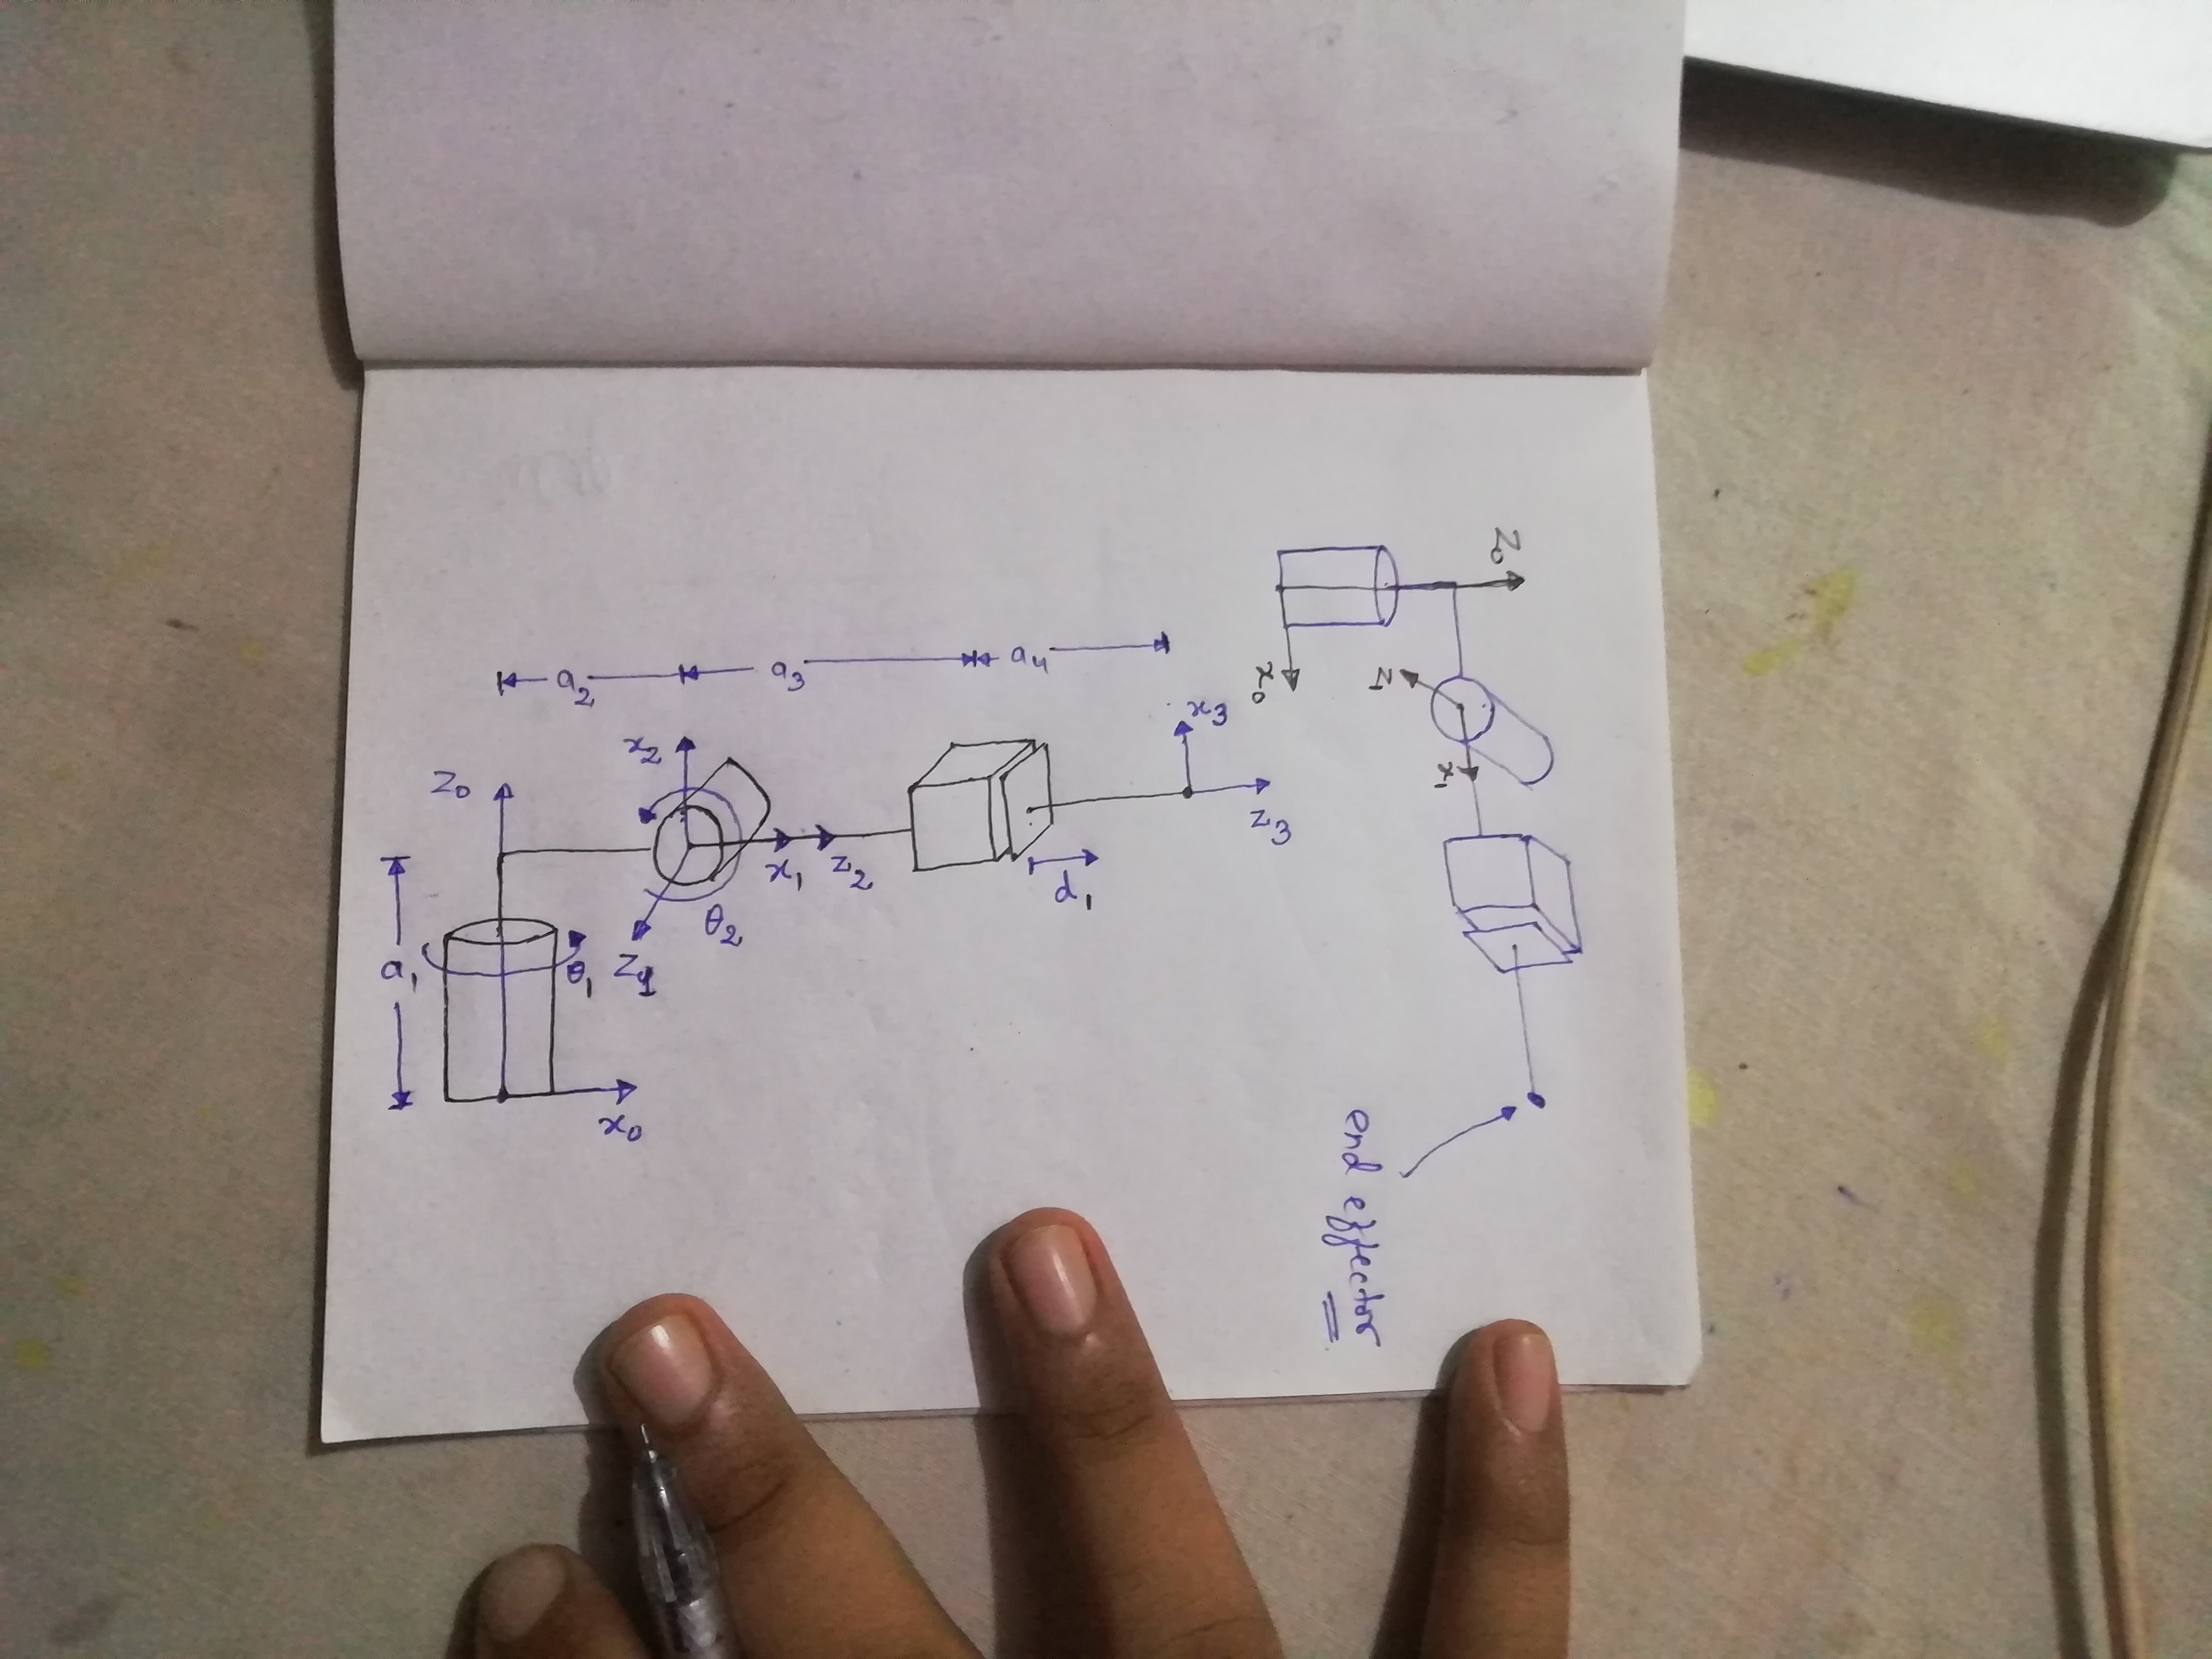 a₂ a₃ a₄
x₂ x₃
z₀
x₁ z₂ z₃
d₁
θ₂
a₁ θ₁ z₁
x₀
z₀
x₀ z₁
x₁
end effector